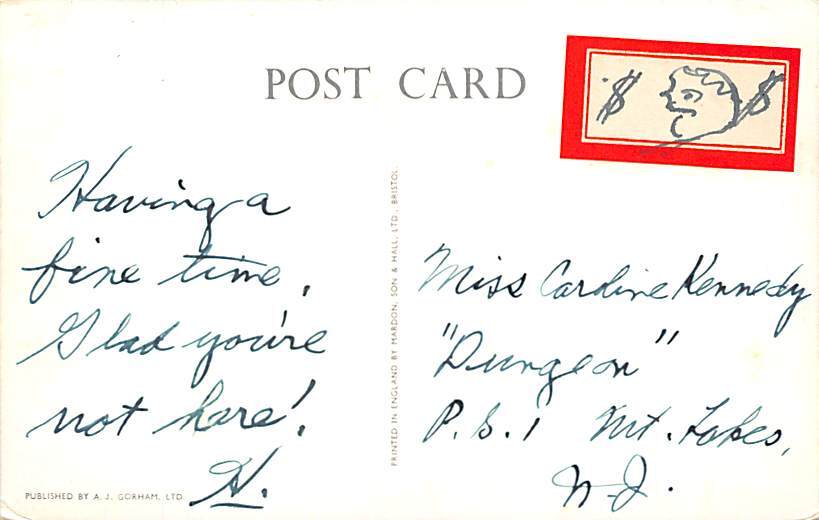 POST CARD
$ $
Having a
fine time,
Glad you're
not here!
H.
PUBLISHED BY A. J. GORHAM, LTD
PRINTED IN ENGLAND BY MARDON, SON & HALL, LTD., BRISTOL.
Miss Caroline Kennedy
"Dungeon"
P.S.1 Mt. Lakes,
N.J.